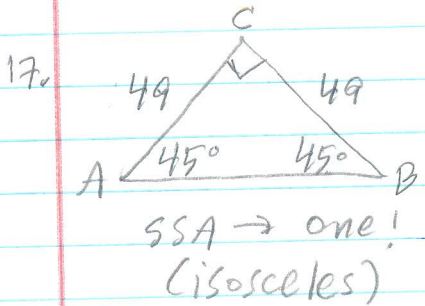 17.
C
49 49
45° 45°
A B
SSA → one!
(isosceles)